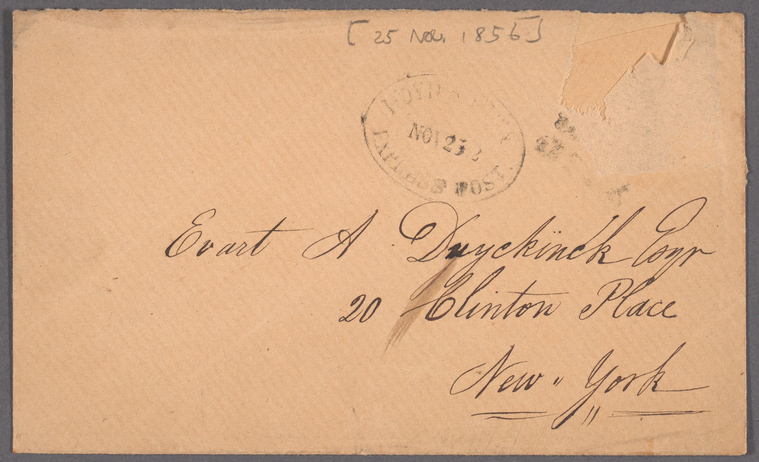 [25 Nov. 1856]
BOYD'S CITY
NOV 25
EXPRESS POST.
Evart A Duyckinck Esqr
20 Clinton Place
New York